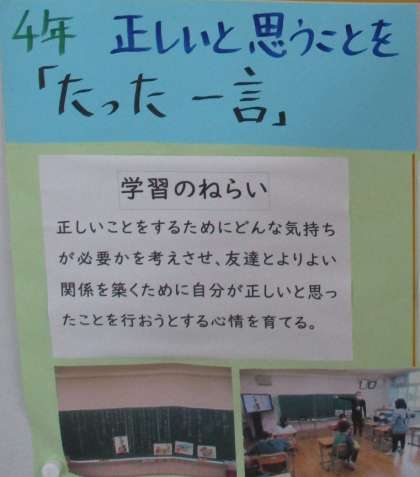 4年 正しいと思うことを
「たった一言」
学習のねらい
正しいことをするためにどんな気持ち
が必要かを考えさせ、友達とよりよい
関係を築くために自分が正しいと思っ
たことを行おうとする心情を育てる。